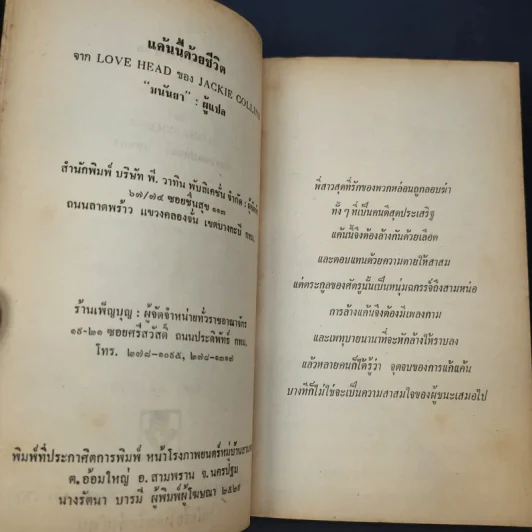 แค้นนี้ด้วยชีวิต
จาก LOVE HEAD ของ JACKIE COLLINS
"มนันยา" : ผู้แปล
สำนักพิมพ์ บริษัท พี. วาทิน พับลิเคชั่น จำกัด :
๖๗/๗๔ ซอยชื่นสุข ๑๑๓
ถนนลาดพร้าว แขวงคลองจั่น เขตบางกะปิ กทม.
ร้านเพ็ญบุญ : ผู้จัดจำหน่ายทั่วราชอาณาจักร
๑๙-๒๑ ซอยศรีสวัสดิ์ ถนนประดิพัทธ์ กทม.
โทร. ๒๗๘-๑๐๙๕, ๒๗๘-๑๓๑๙
พิมพ์ที่ประกาศิตการพิมพ์ หน้าโรงภาพยนตร์หมู่บ้าน
ต.อ้อมใหญ่ อ.สามพราน จ.นครปฐม
นางรัตนา บารมี ผู้พิมพ์ผู้โฆษณา ๒๕๒๙
พี่สาวสุดที่รักของพวกหล่อนถูกลอบฆ่า
ทั้ง ๆ ที่เป็นคนดีสุดประเสริฐ
แค้นนี้จึงต้องล้างกันด้วยเลือด
และตอบแทนด้วยความตายให้สาสม
แต่ตระกูลของศัตรูนั้นเป็นหนุ่มฉกรรจ์ถึงสามหน่อ
การล้างแค้นจึงต้องมีเพลงกาม
และเพทุบายนานาที่จะหักล้างให้ราบลง
แล้วหลายคนก็ได้รู้ว่า จุดจบของการแก้แค้น
บางทีก็ไม่ใช่จะเป็นความสาสมใจของผู้ชนะเสมอไป